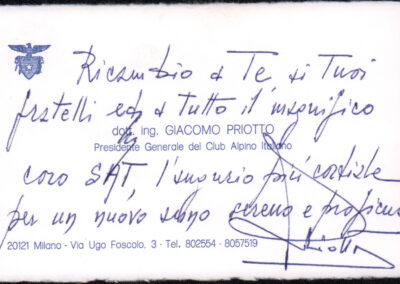 Ricambio a Te ai Tuoi
fratelli ed a tutto il magnifico
dott. ing. GIACOMO PRIOTTO
Presidente Generale del Club Alpino Italiano
coro SAT, l'augurio più cordiale
per un nuovo anno sereno e proficuo
20121 Milano - Via Ugo Foscolo, 3 - Tel. 802554 - 8057519
Priotto